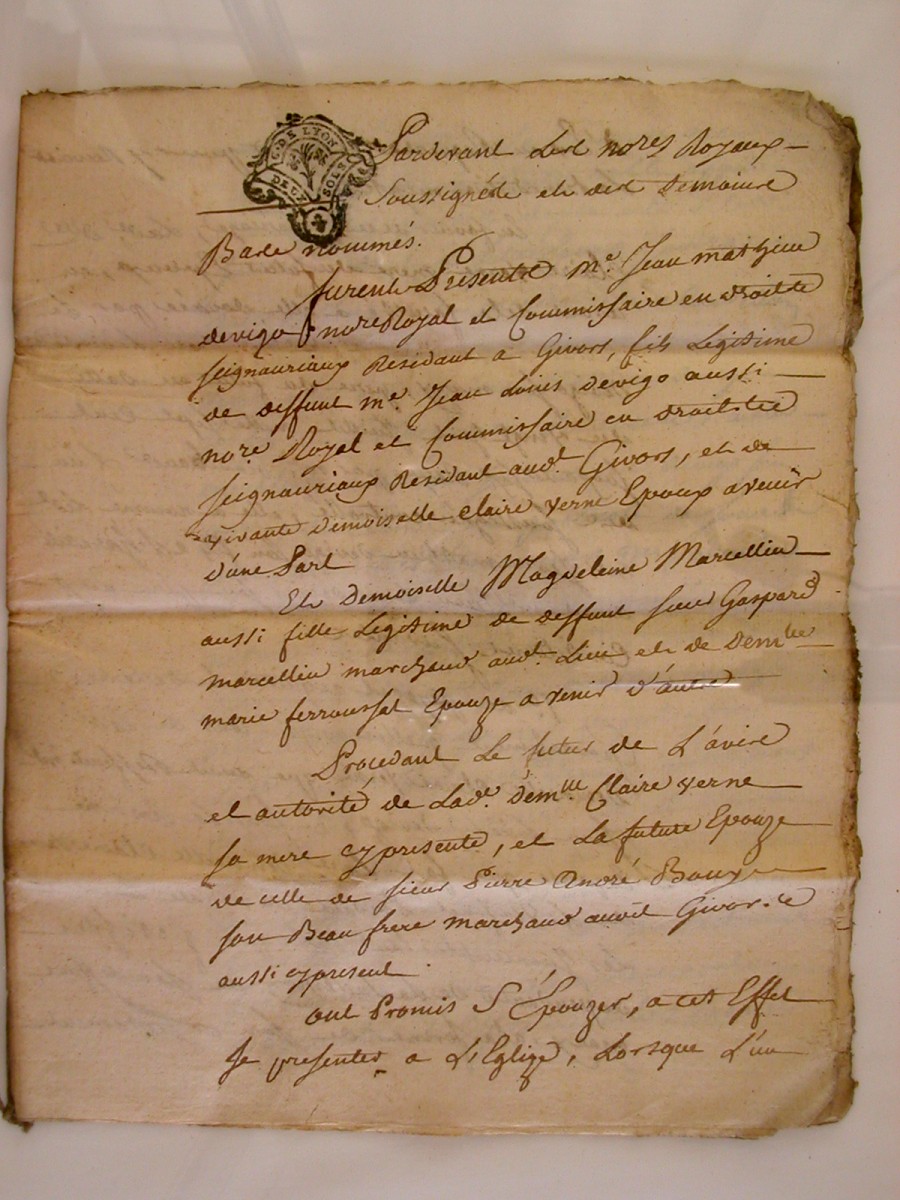 G. DE LYON
DEUX SOLS
Pardevant Les nores Royaux
Soussignés et des Temoins
Bas nommés.
furent Presents me. Jean mathieu
devigo nore Royal et Commissaire en droits
seignauriaux Residant a Givors, fils Legitime
de deffunt me. Jean Louis devigo aussi
nore. Royal et Commissaire en droits
seignauriaux Residant audt. Givors, et de
vivante demoiselle claire verne Epoux avenir
d'une Part
Et demoiselle Magdeleine Marcellin
aussi fille Legitime de deffunt sieur Gaspard
marcellin marchand audt. Lieu et de demlle
marie ferroussat Epouze a venir d'autre
Procedant Le futur de L'avis
et autorité de Lade. demlle Claire verne
sa mere cypresente, et La future Epouze
de celle de sieur Pierre André Boux
son Beau frere marchand audit Givors
aussi cypresent
ont Promis S'Épouzer, a cet Effet
Se presenter a L'Eglize, Lorsque L'un